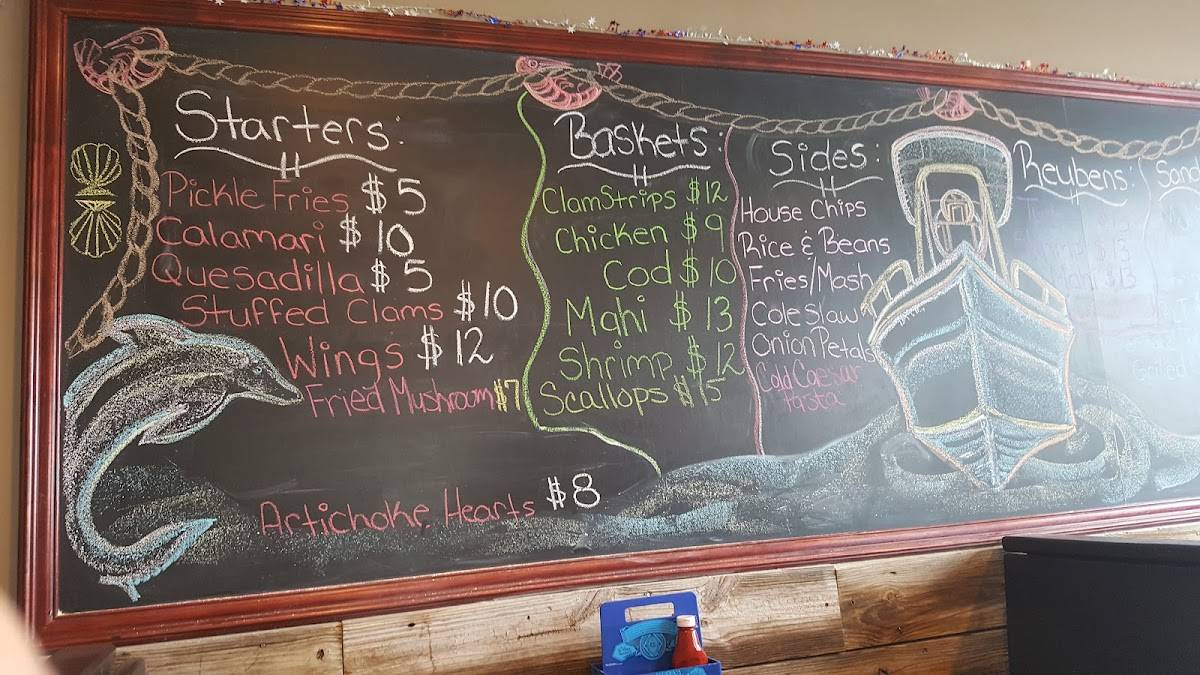 Starters:
Pickle Fries $5
Calamari $10
Quesadilla $5
Stuffed Clams $10
Wings $12
Fried Mushroom $7
Artichoke Hearts $8
Baskets:
Clam Strips $12
Chicken $9
Cod $10
Mahi $13
Shrimp $12
Scallops $15
Sides:
House Chips
Rice & Beans
Fries/Mash
Cole Slaw
Onion Petals
Cold Caesar
Pasta
Reubens: